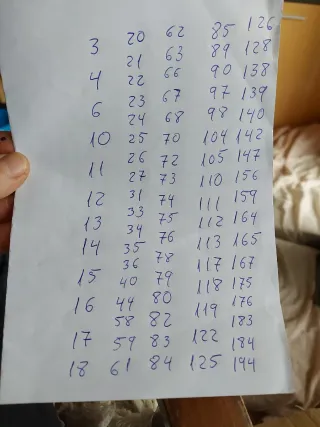 3
4
6
10
11
12
13
14
15
16
17
18
20
21
22
23
24
25
26
27
31
33
34
35
36
40
44
58
59
61
62
63
66
67
68
70
72
73
74
75
76
78
79
80
82
83
84
85
89
90
97
98
104
105
110
111
112
113
117
118
119
122
125
126
128
138
139
140
142
147
156
159
164
165
167
175
176
183
184
194